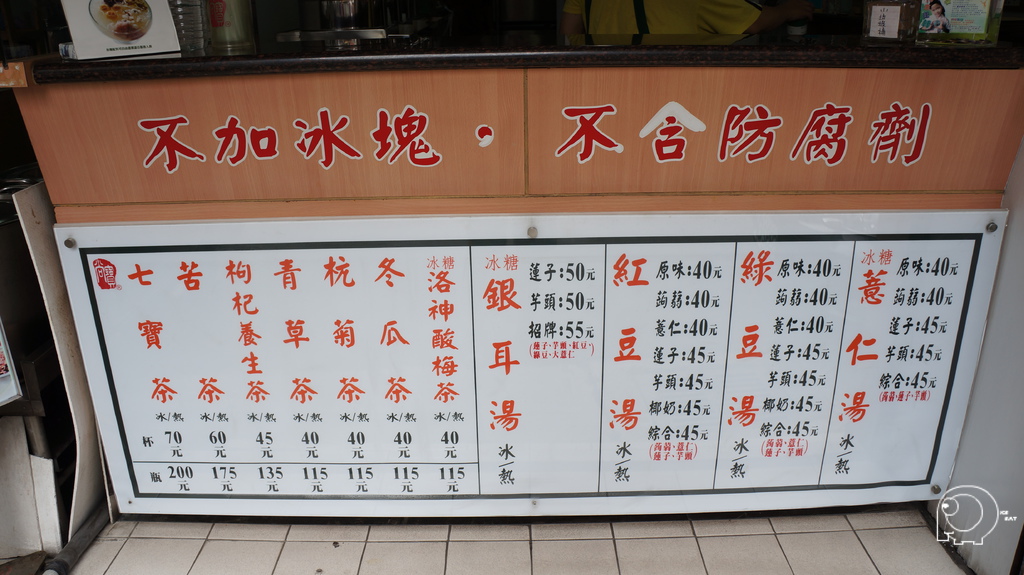 不加冰塊・不含防腐劑
七寶茶 冰/熱 杯 70元 瓶 200元
苦茶 冰/熱 60元 175元
枸杞養生茶 冰/熱 45元 135元
青草茶 冰/熱 40元 115元
杭菊茶 冰/熱 40元 115元
冬瓜茶 冰/熱 40元 115元
冰糖洛神酸梅茶 冰/熱 40元 115元
冰糖銀耳湯 冰/熱
蓮子:50元
芋頭:50元
招牌:55元
(蓮子、芋頭、紅豆、
綠豆、大薏仁)
紅豆湯 冰/熱
原味:40元
蒟蒻:40元
薏仁:40元
蓮子:45元
芋頭:45元
椰奶:45元
綜合:45元
(蒟蒻、薏仁
蓮子、芋頭)
綠豆湯 冰/熱
原味:40元
蒟蒻:40元
薏仁:40元
蓮子:45元
芋頭:45元
椰奶:45元
綜合:45元
(蒟蒻、薏仁
蓮子、芋頭)
冰糖薏仁湯 冰/熱
原味:40元
蒟蒻:40元
蓮子:45元
芋頭:45元
綜合:45元
(蒟蒻、蓮子、芋頭)